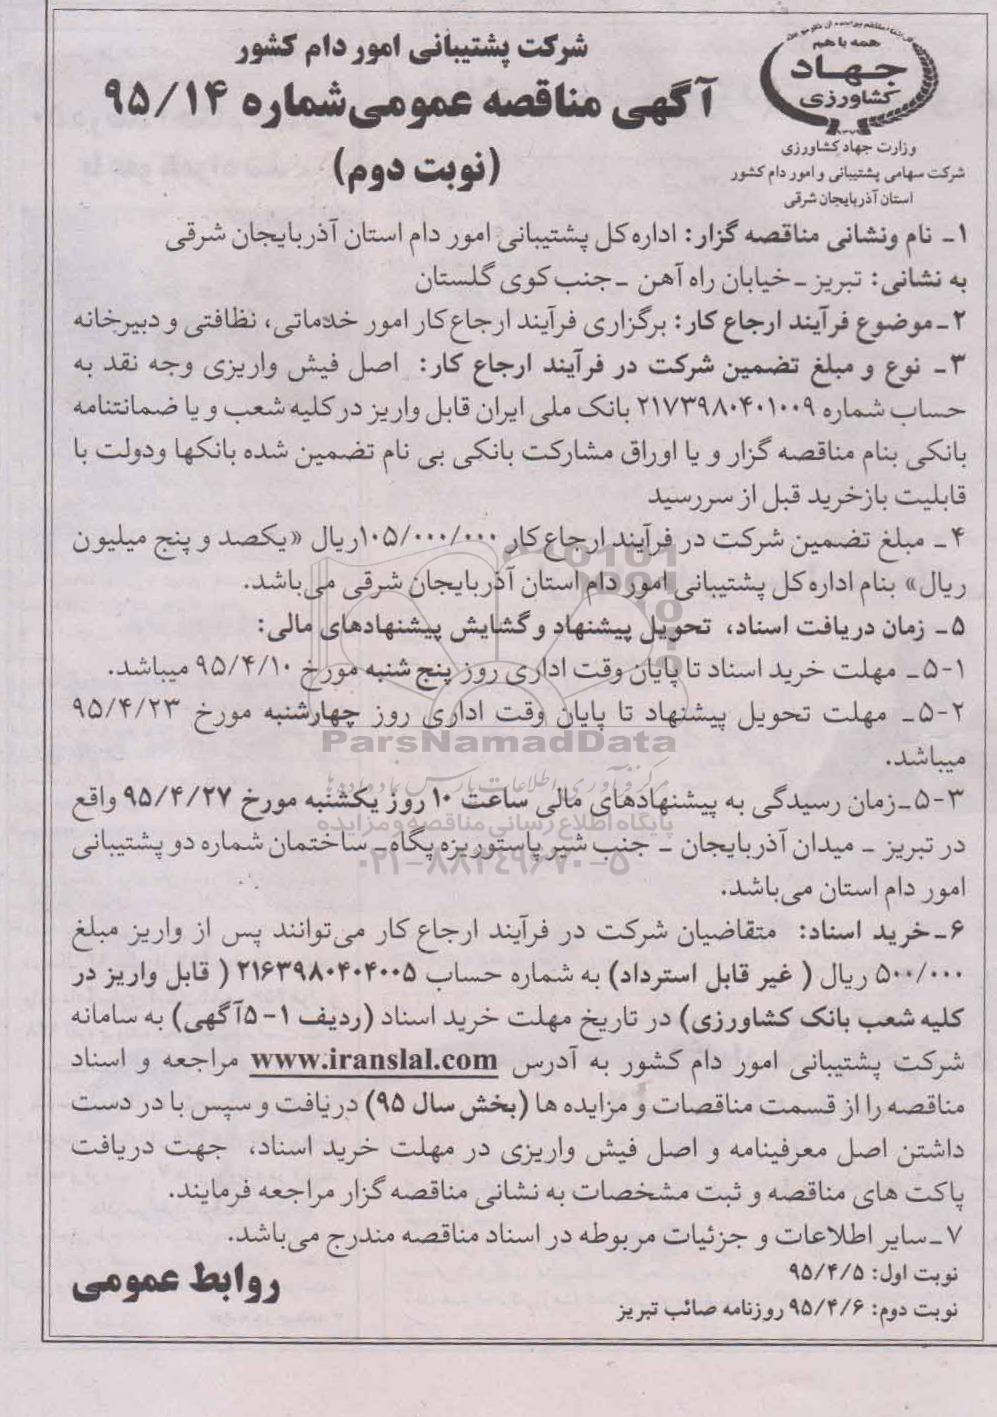 همه با هم
جهاد
کشاورزی
وزارت جهاد کشاورزی
شرکت سهامی پشتیبانی و امور دام کشور
استان آذربایجان شرقی
شرکت پشتیبانی امور دام کشور
آگهی مناقصه عمومی شماره ۹۵/۱۴
(نوبت دوم)
۱- نام ونشانی مناقصه گزار: اداره کل پشتیبانی امور دام استان آذربایجان شرقی
به نشانی: تبریز - خیابان راه آهن - جنب کوی گلستان
۲- موضوع فرآیند ارجاع کار: برگزاری فرآیند ارجاع کار امور خدماتی، نظافتی و دبیرخانه
۳- نوع و مبلغ تضمین شرکت در فرآیند ارجاع کار: اصل فیش واریزی وجه نقد به
حساب شماره ۲۱۷۳۹۸۰۴۰۱۰۰۹ بانک ملی ایران قابل واریز در کلیه شعب و یا ضمانتنامه
بانکی بنام مناقصه گزار و یا اوراق مشارکت بانکی بی نام تضمین شده بانکها ودولت با
قابلیت بازخرید قبل از سررسید
۴- مبلغ تضمین شرکت در فرآیند ارجاع کار ۱۰۵/۰۰۰/۰۰۰ریال «یکصد و پنج میلیون
ریال» بنام اداره کل پشتیبانی امور دام استان آذربایجان شرقی می باشد.
۵- زمان دریافت اسناد، تحویل پیشنهاد و گشایش پیشنهادهای مالی:
۵-۱- مهلت خرید اسناد تا پایان وقت اداری روز پنج شنبه مورخ ۹۵/۴/۱۰ میباشد.
۵-۲- مهلت تحویل پیشنهاد تا پایان وقت اداری روز چهارشنبه مورخ ۹۵/۴/۲۳
میباشد.
۵-۳- زمان رسیدگی به پیشنهادهای مالی ساعت ۱۰ روز یکشنبه مورخ ۹۵/۴/۲۷ واقع
در تبریز - میدان آذربایجان - جنب شیر پاستوریزه پگاه - ساختمان شماره دو پشتیبانی
امور دام استان می باشد.
۶- خرید اسناد: متقاضیان شرکت در فرآیند ارجاع کار می توانند پس از واریز مبلغ
۵۰۰/۰۰۰ ریال ( غیر قابل استرداد) به شماره حساب ۲۱۶۳۹۸۰۴۰۴۰۰۵ ( قابل واریز در
کلیه شعب بانک کشاورزی) در تاریخ مهلت خرید اسناد (ردیف ۱-۵آگهی) به سامانه
شرکت پشتیبانی امور دام کشور به آدرس www.iranslal.com مراجعه و اسناد
مناقصه را از قسمت مناقصات و مزایده ها (بخش سال ۹۵) دریافت و سپس با در دست
داشتن اصل معرفینامه و اصل فیش واریزی در مهلت خرید اسناد، جهت دریافت
پاکت های مناقصه و ثبت مشخصات به نشانی مناقصه گزار مراجعه فرمایند.
۷- سایر اطلاعات و جزئیات مربوطه در اسناد مناقصه مندرج می باشد.
نوبت اول: ۹۵/۴/۵
نوبت دوم: ۹۵/۴/۶ روزنامه صائب تبریز
روابط عمومی
ParsNamadData
مرکز فرآوری اطلاعات پارس نماد داده ها
پایگاه اطلاع رسانی مناقصه و مزایده
۰۲۱-۸۸۳۴۹۶۷۰-۵